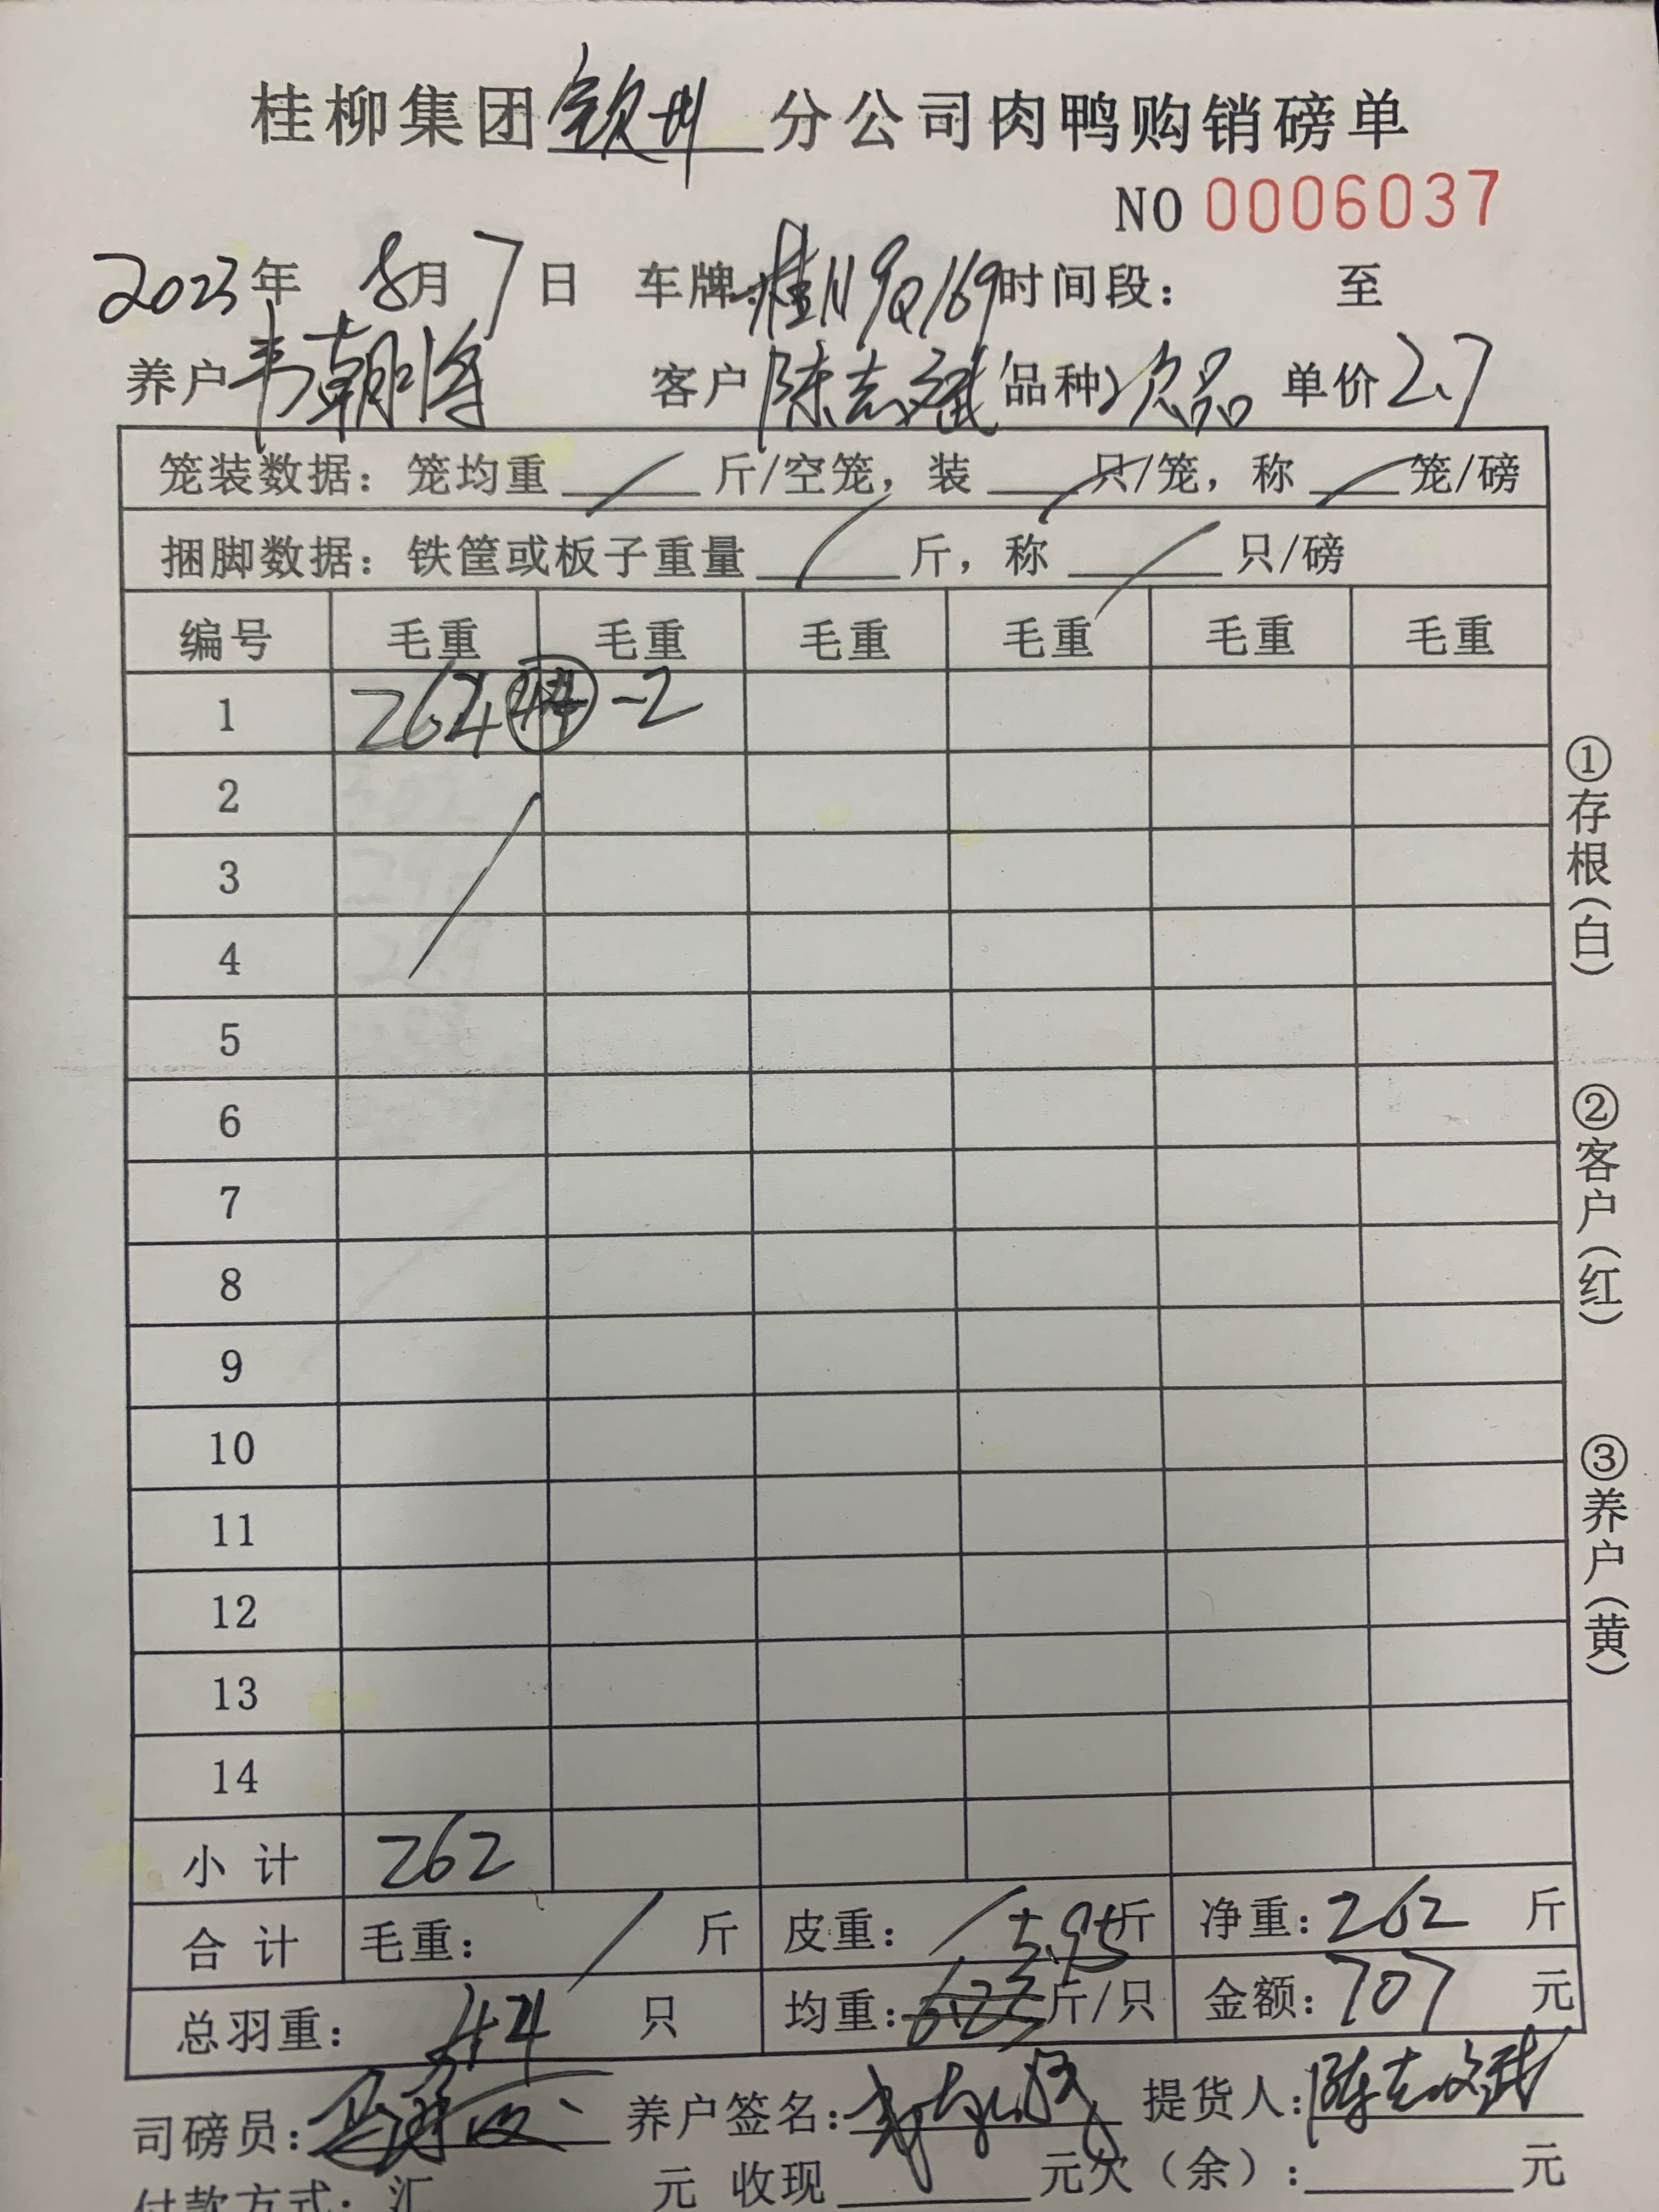 桂柳集团钦州分公司肉鸭购销磅单
NO 0006037
2023年 8月7日 车牌:桂N9Q169时间段: 至
养户韦朝将 客户陈志斌 品种次品 单价2.7
笼装数据: 笼均重 / 斤/空笼, 装 / 只/笼, 称 / 笼/磅
捆脚数据: 铁筐或板子重量 / 斤, 称 / 只/磅
编号 毛重 毛重 毛重 毛重 毛重 毛重
1 264 44 -2
2
3
4
5
6
7
8
9
10
11
12
13
14
小计 262
合计 毛重: / 斤 皮重: / 斤 净重: 262 斤
总羽重: 44 只 均重: 6.23 5.95 斤/只 金额: 707 元
司磅员: 养户签名: 提货人: 陈志斌
付款方式: 汇 元 收现 元欠(余): 元
①存根(白)
②客户(红)
③养户(黄)